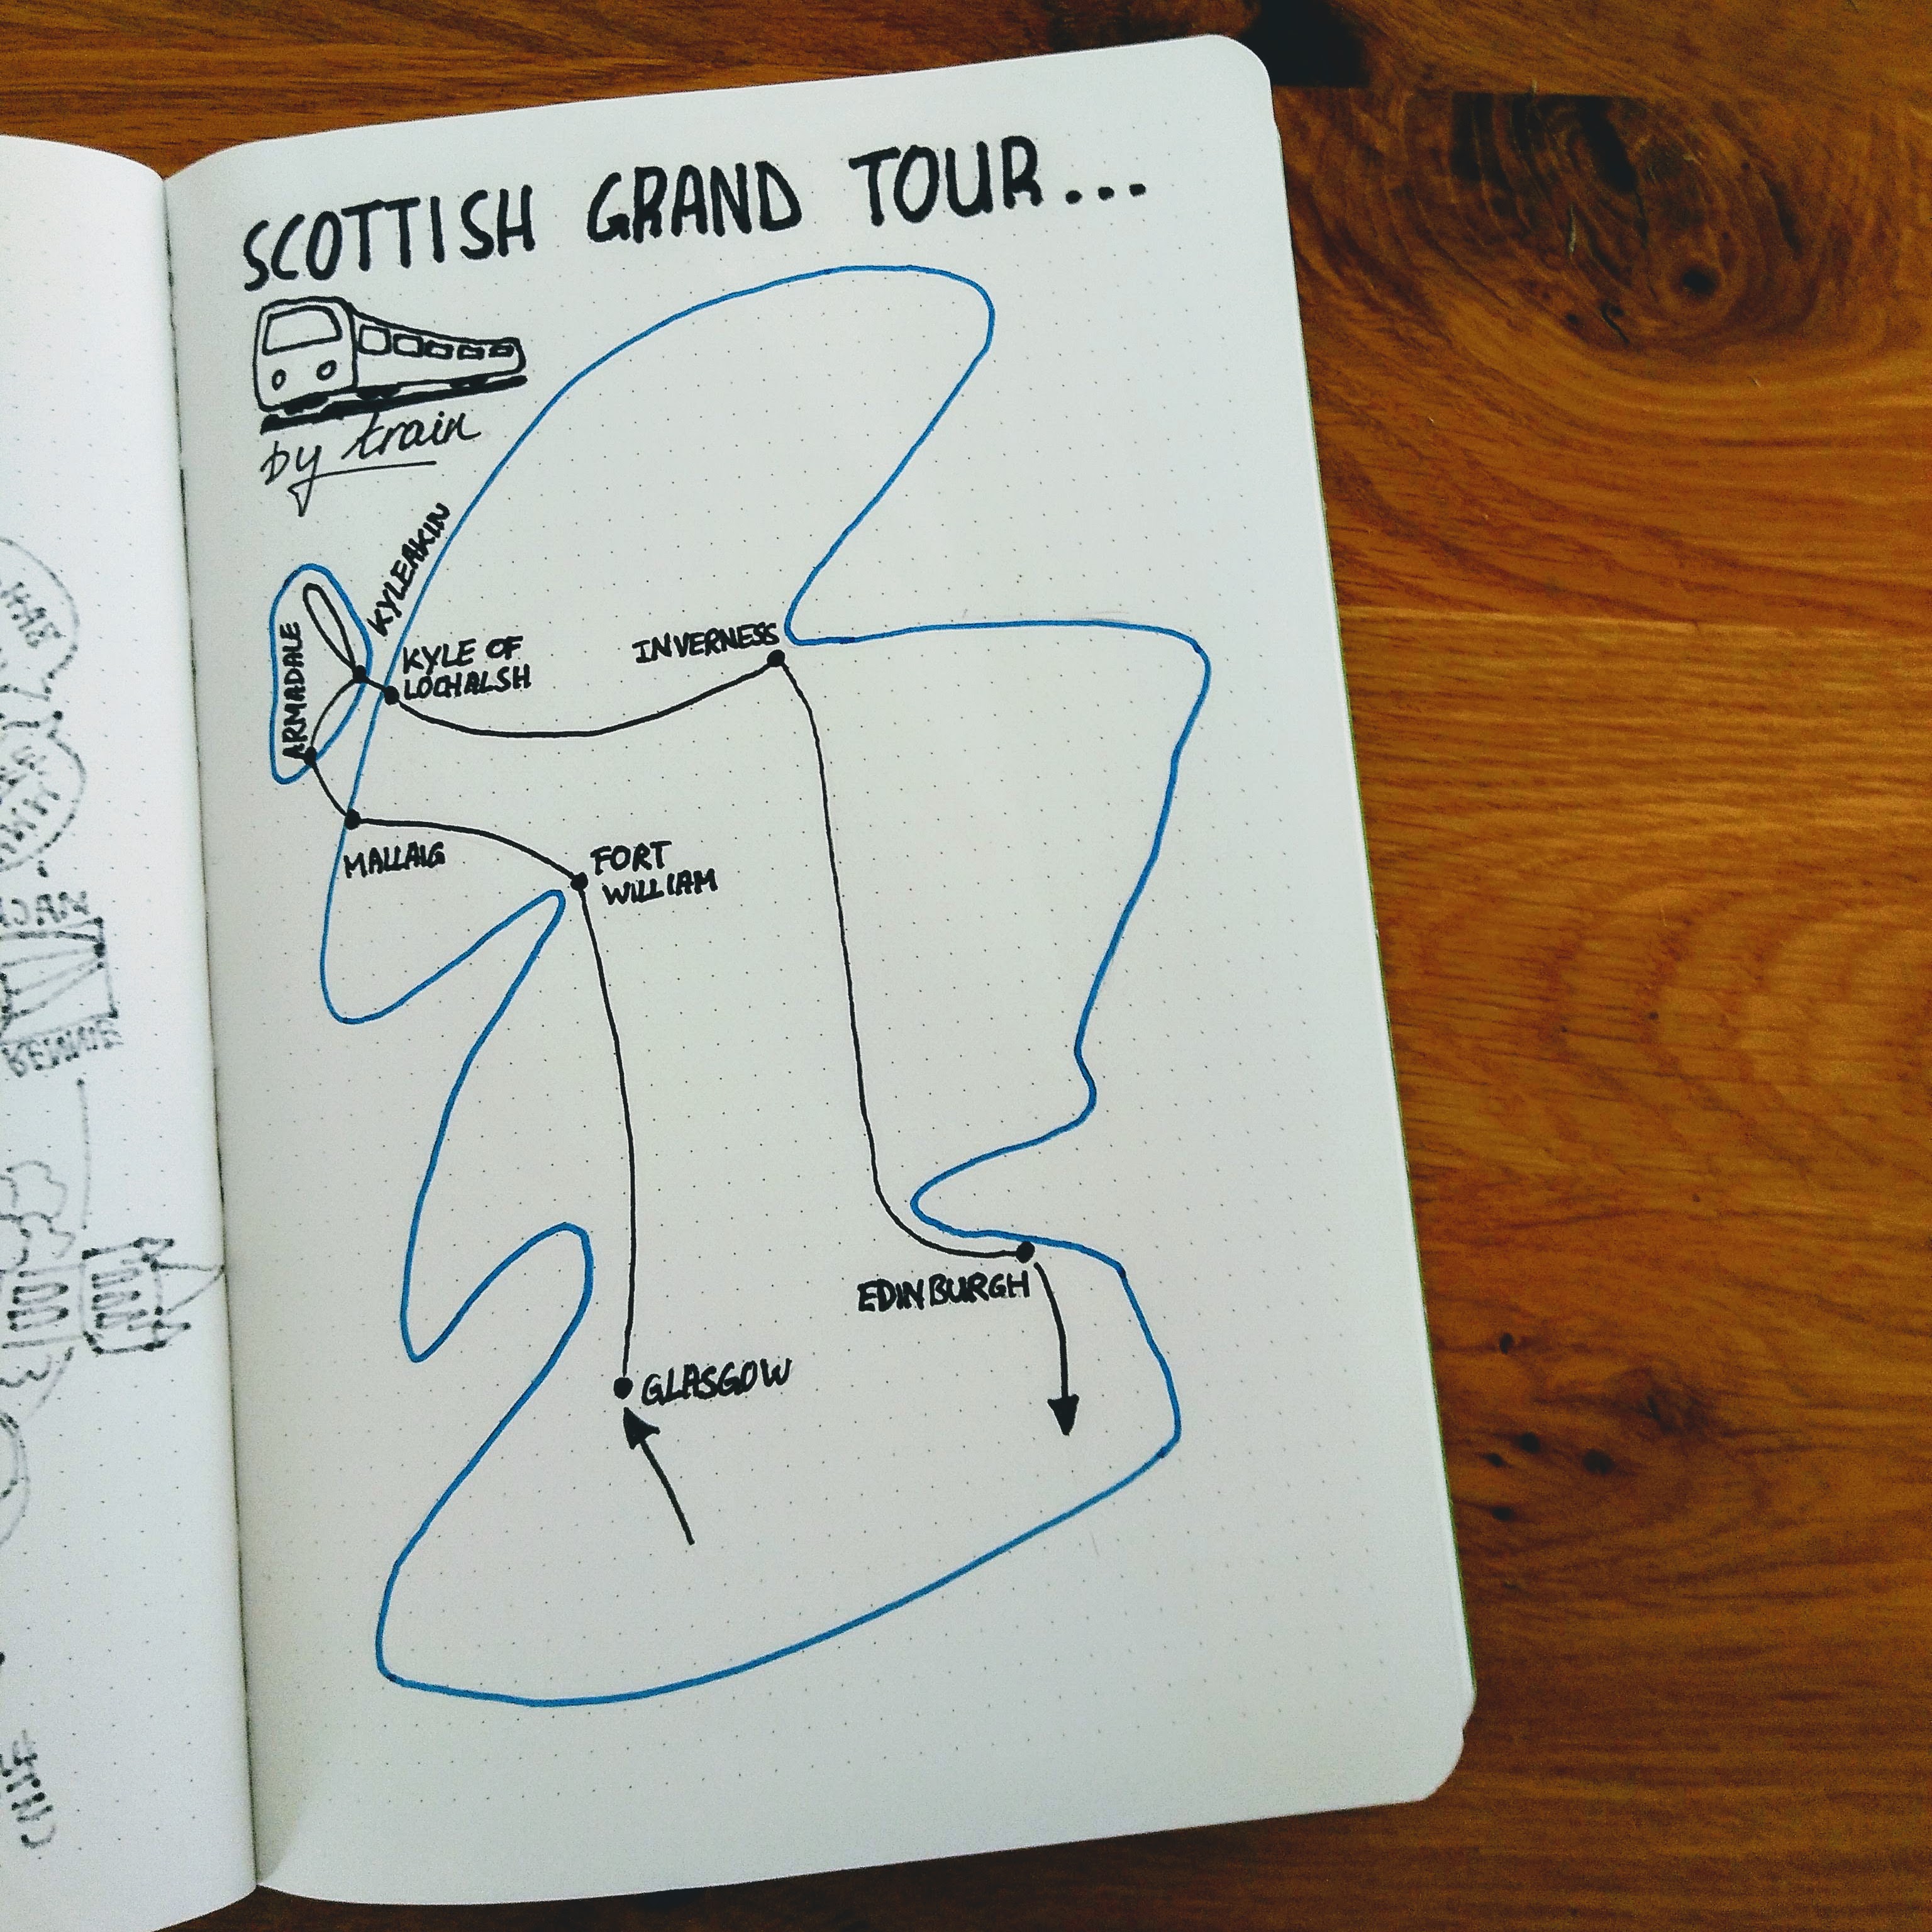 SCOTTISH GRAND TOUR...
by train
KYLEAKIN
ARMADALE
KYLE OF
LOCHALSH
INVERNESS
MALLAIG
FORT
WILLIAM
EDINBURGH
GLASGOW